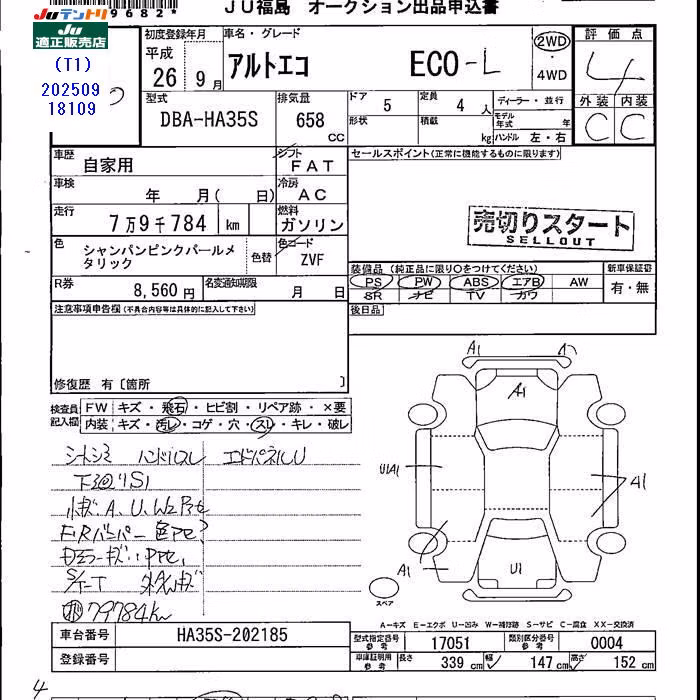 9682*
JU福島 オークション出品申込書
Juテントリ
JU
適正販売店
(T1)
202509
18109
初度登録年月
平成
26 9月
車名・グレード
アルトエコ ECO-L
2WD
・
4WD
評価点
4
外装 内装
C C
型式
DBA-HA35S
排気量
658
CC
ドア
5
定員
4人
ディーラー・並行
形状
積載
kg
モデル年式
年
ハンドル 左・右
車歴
自家用
シフト
FAT
セールスポイント(正常に機能するものに限ります)
車検
年 月( 日)
冷房
AC
走行
7万9千784 km
燃料
ガソリン
売切りスタート
SELLOUT
色
シャンパンピンクパールメタリック
色替
色コード
ZVF
R券
8,560円
名変通知期限
月 日
装備品 (純正品に限り○をつけてください)
PS PW ABS エアB AW
SR ナビ TV カワ
新車保証書
有・無
注意事項申告欄(不具合内容等は具体的に記入して下さい)
後日品
修復歴 有〔箇所 〕
検査員記入欄
FW キズ・飛石・ヒビ割・リペア跡・×要
内装 キズ・汚レ・コゲ・穴・スレ・キレ・破レ
シートシミ ハンドルスレ エドパネルU
下廻りS1
小キズ、A、U、W2
79784km
A1
A1
U1A1
A1
A1
U1
スペア
A-キズ E-エクボ U-凹み W-補修跡 S-サビ C-腐食 XX-交換済
車台番号
HA35S-202185
登録番号
型式指定番号
参考
17051
類別区分番号
参考
0004
車庫証明用
参考
長さ 339 cm
幅 147 cm
高さ 152 cm
4